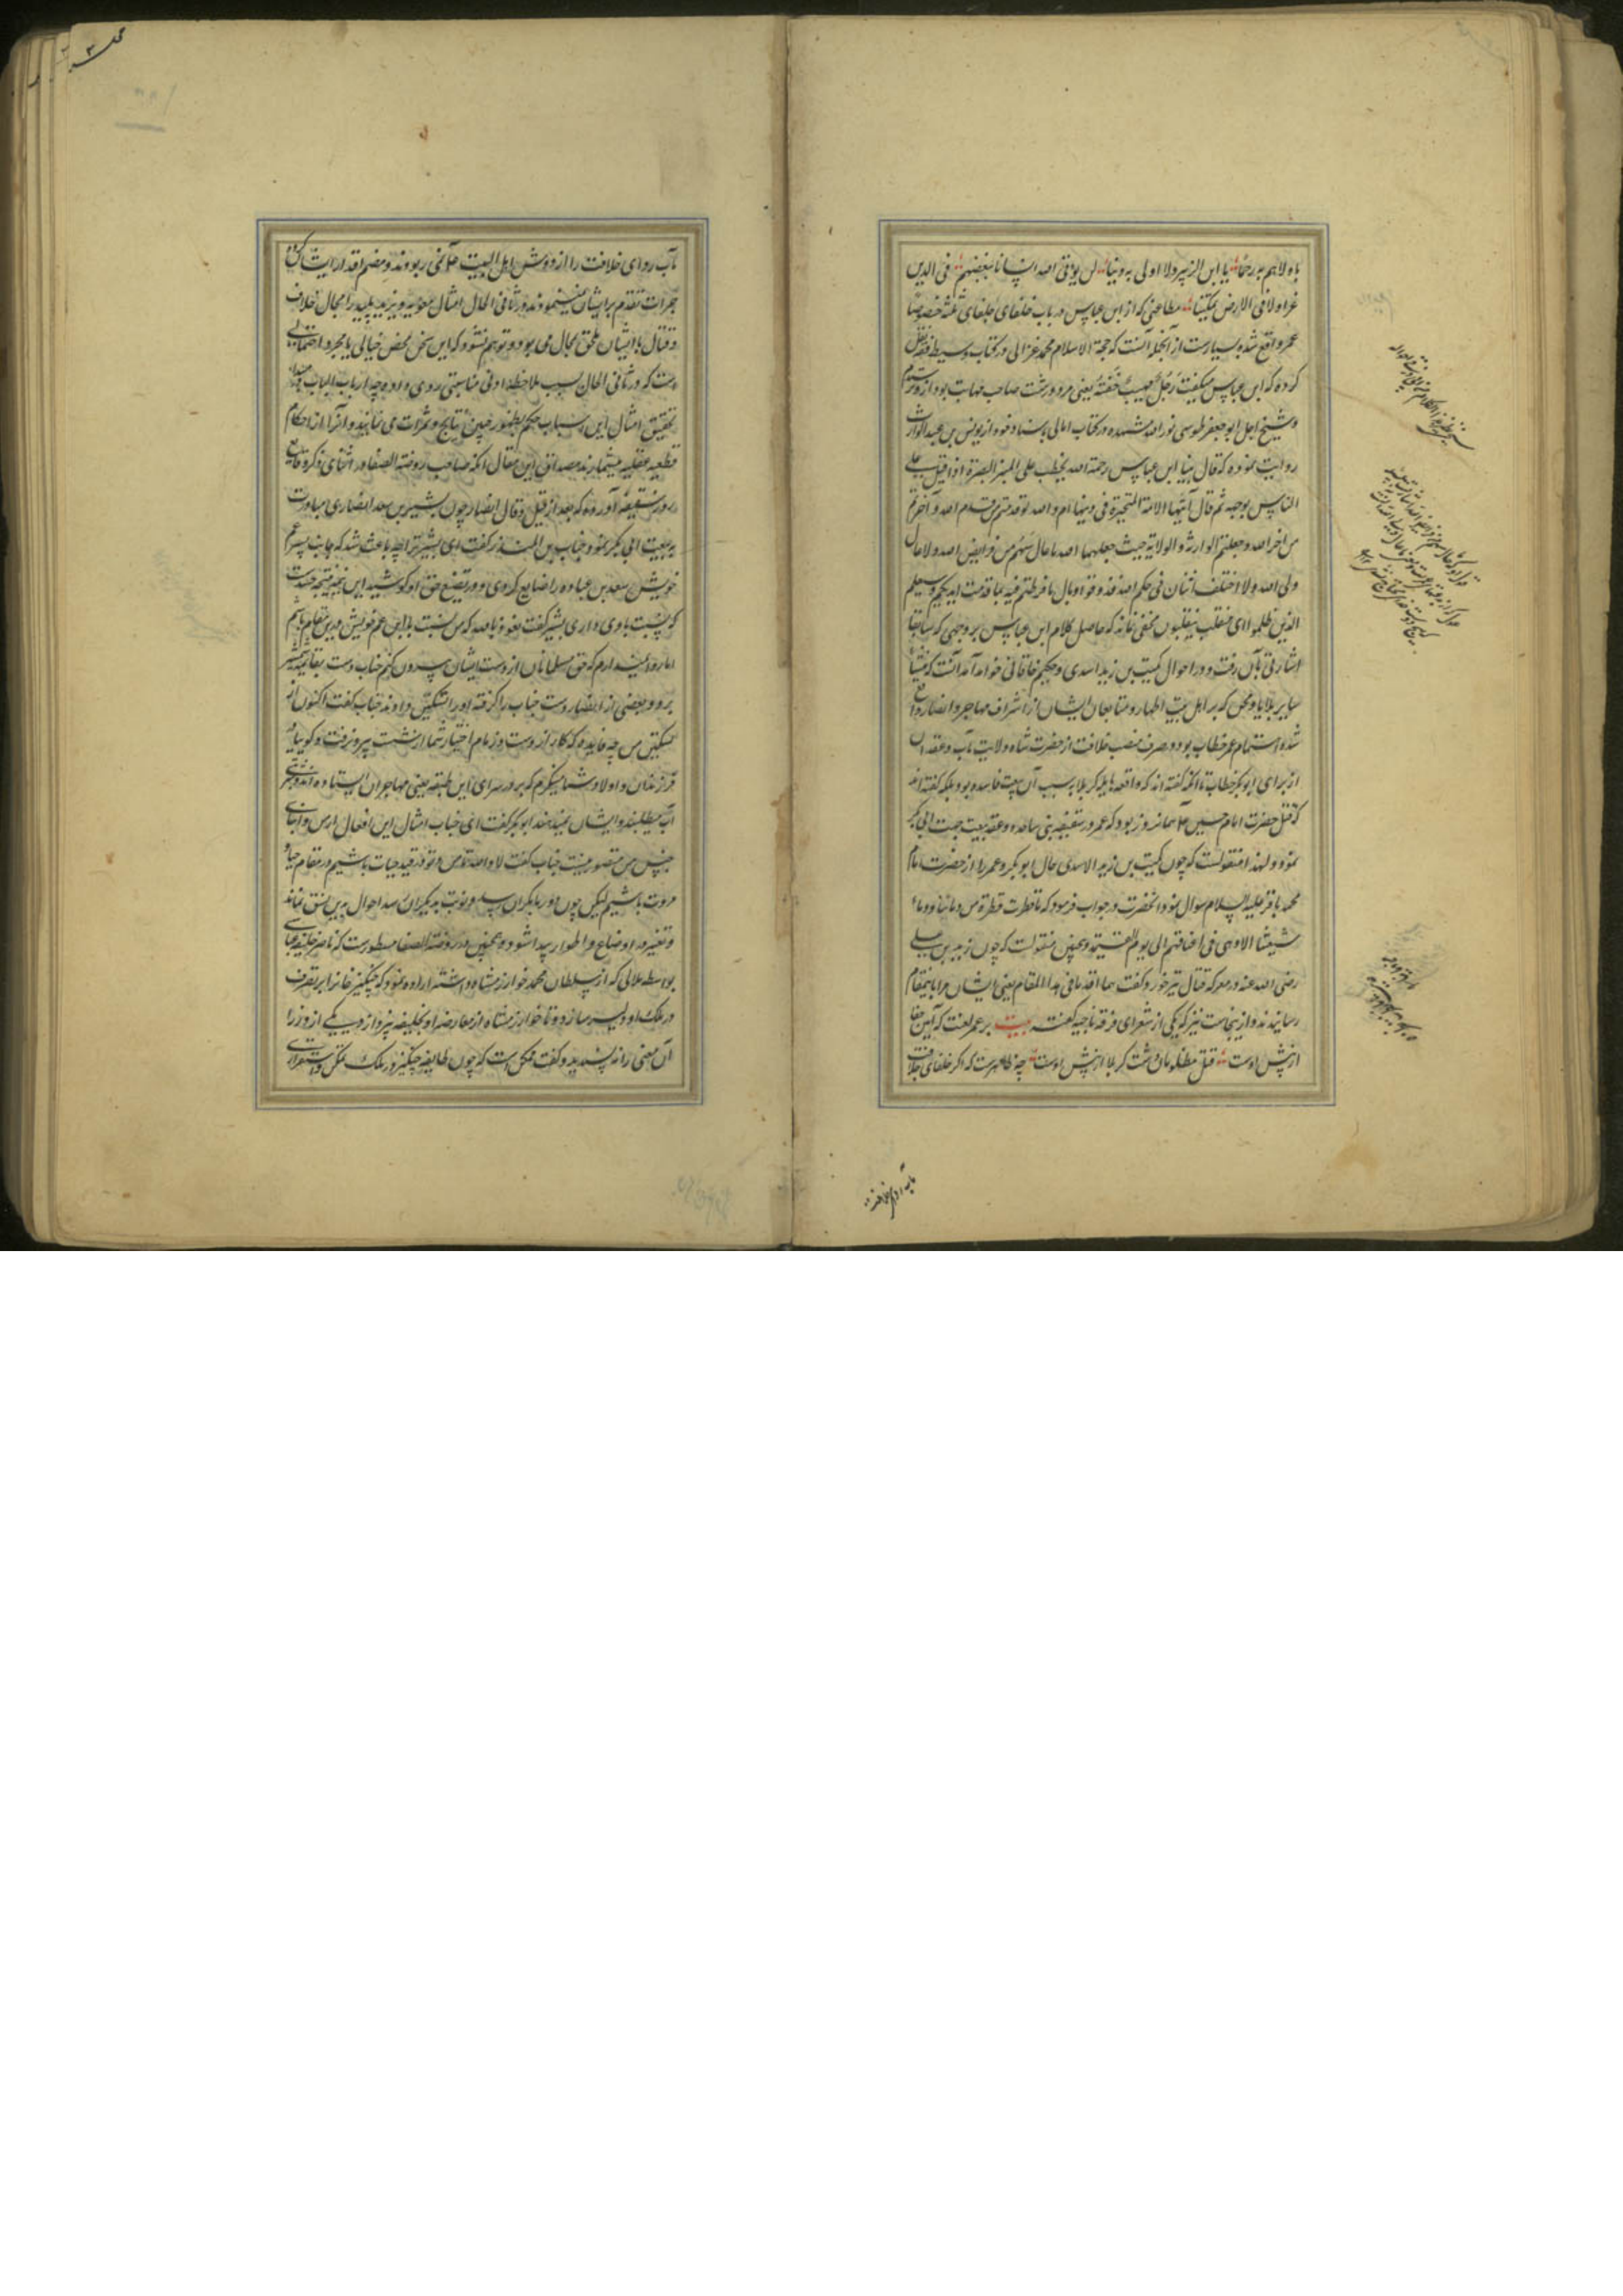 باولاهم به رحماً یا ابن الزبیر ولا اولی به دنیا لن یؤتی الله انسانا ببغضهم فی الدین
عزا ولا فی الارض تمکینا مطاعنی که از ابن عباس در باب خلفای ثلثه خصوصا
عمر واقع شده بسیارست از آنجمله آنست که حجة الاسلام محمد غزالی در کتاب وسیط فقه نقل
کرده که ابن عباس میگفت رجل مهیب یعنی مرد درشت صاحب مهابت بود از و ترسیدم
و شیخ اجل ابو جعفر طوسی نور الله مشهده در کتاب امالی باسناد خود از یونس بن عبد الوارث
روایت نموده که قال بینا ابن عباس رحمة الله یخطب علی المنبر البصرة اذا قبل علی
الناس بوجهه ثم قال ایتها الامة المتحیرة فی دینها ام والله لو قدمتم من قدم الله و آخرتم
من اخر الله وجعلتم الوارثة والولایة حیث جعلهما الله ما عال سهم من فرایض الله ولا عال
ولی الله ولا اختلف اثنان فی حکم الله فذوقوا وبال ما فرطتم فیه بما قدمت ایدیکم وسیعلم
الذین ظلموا ای منقلب ینقلبون مخفی نماند که حاصل کلام ابن عباس بر وجهی که سابقا
اشارتی بآن رفت و در احوال کمیت بن زید اسدی و حکیم خاقانی خواهد آمد آنست که منشأ
سایر بلایا و محن که بر اهل بیت اطهار و متابعان ایشان از اشراف مهاجر و انصار واقع
شده اهتمام عمر خطاب بود در صرف منصب خلافت از حضرت شاه ولایت مآب و عقد آن
از برای ابو بکر خطاب تا آنکه گفته اند که واقعه هایله کربلا بسبب آن بیعت فاسده بود بلکه گفته اند
که قتل حضرت امام حسین همانروز بود که عمر در سقیفه بنی ساعده وعقد بیعت جهت ابی بکر
نمود و لهذا منقولست که چون کمیت بن زید الاسدی حال ابو بکر و عمر را از حضرت امام
محمد باقر علیه السلام سؤال نمود آنحضرت در جواب فرمود که ما قطرت قطرة من دمائنا و دماء
شیعتنا الا وهی فی اعناقهم الی یوم القیمة و همچنین منقولست که چون زید بن علی
رضی الله عنه در معرکه قتال تیر خورد گفت هما اقدمانی هذا المقام یعنی ایشان مرا باینمقام
رسانیدند و از ینجاست نیز که یکی از شعرای فرقه ناجیه گفته بیت بر عمر لعنت که آیین جفا
از پیش اوست قتل مظلومان دشت کربلا از پیش اوست چه ظاهرست که اگر خلفای خلافت
مآب ردای خلافت
مآب ردای خلافت را از دوش اهل البیت نمی ربودند و مضم اقدار ایشان کرده
جرات تقدم بر ایشان نمینمودند در ثانی الحال امثال معویه و یزید پلید را مجال خلاف
و قتال با ایشان ملحق بمحال می بود و توهم نشود که این سخن محض خیالی یا مجرد احتمالی
است که در ثانی الحال بسبب ملاحظه ادنی مناسبتی روی داده چه ارباب الباب
تحقیق امثال این اسباب حکم بظهور چنین نتایج و ثمرات می نمایند و آنرا از احکام
قطعیه عقلیه میشمارند مصداق این مقال آنکه صاحب روضة الصفا در اثنای ذکر وقایع
روز سقیفه آورده که بعد از قیل و قال انصار چون بشیر بن سعد انصاری مبادرت
به بیعت ابی بکر نمود حباب بن المنذر گفت ای بشیر ترا چه باعث شد که جانب پسر عم
خویش سعد بن عباده را ضایع کردی و در تضییع حق او کوشیدی این نتیجه حسدست
که نسبت باوی داری بشیر گفت نعوذ بالله که من نسبت با ابن عم خویش درین مقام باشم
اما روا نمیدارم که حق مسلمانان از دست ایشان بیرون کنم حباب دست بقایمه شمشیر
برد و بعضی از انصار دست حباب را گرفته او را تسکین دادند حباب گفت اکنون از
تسکین من چه فایده که کار از دست و زمام اختیار شما از شست بیرون رفت و گوییا
فرزندان و اولاد شما مینگرم که بر در سرای این طبقه یعنی مهاجران ایستاده اند و
آب میطلبند و ایشان نمیدهند ابو بکر گفت ای حباب امثال این افعال از من و ابنای
جنس من متصور نیست حباب گفت لا والله تا من و تو در قید حیات باشیم در مقام حیا و
مروت باشیم لیکن چون دور بدیگران رسد و نوبت بدیگران رسد احوال بدین نسق نماند
و تغییر در اوضاع و اطوار پیدا شود و همچنین در روضة الصفا مسطورست که ناصر خلیفه عباسی
بواسطه ملالی که از سلطان محمد خوارزمشاه داشت اراده نمود که چنگیز خانرا بر تصرف
در ملک او دلیر سازد و تا خوارزمشاه از معارضه او بخلیفه نپردازد یکی از وزرا
آن معنی را نه پسندید و گفت ممکن است که چون طایفه چنگیز در ملک تمکن و استقراری